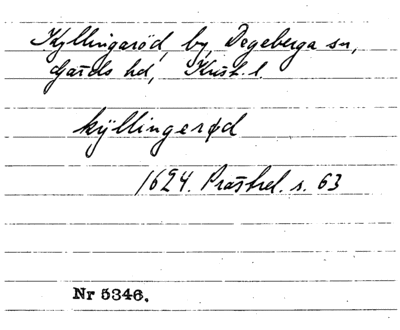 Kyllingaröd, by, Degeberga sn,
Gärds hd, Krist. l.
kÿllingerød
1624. Prästrel. s. 63
Nr 5346.